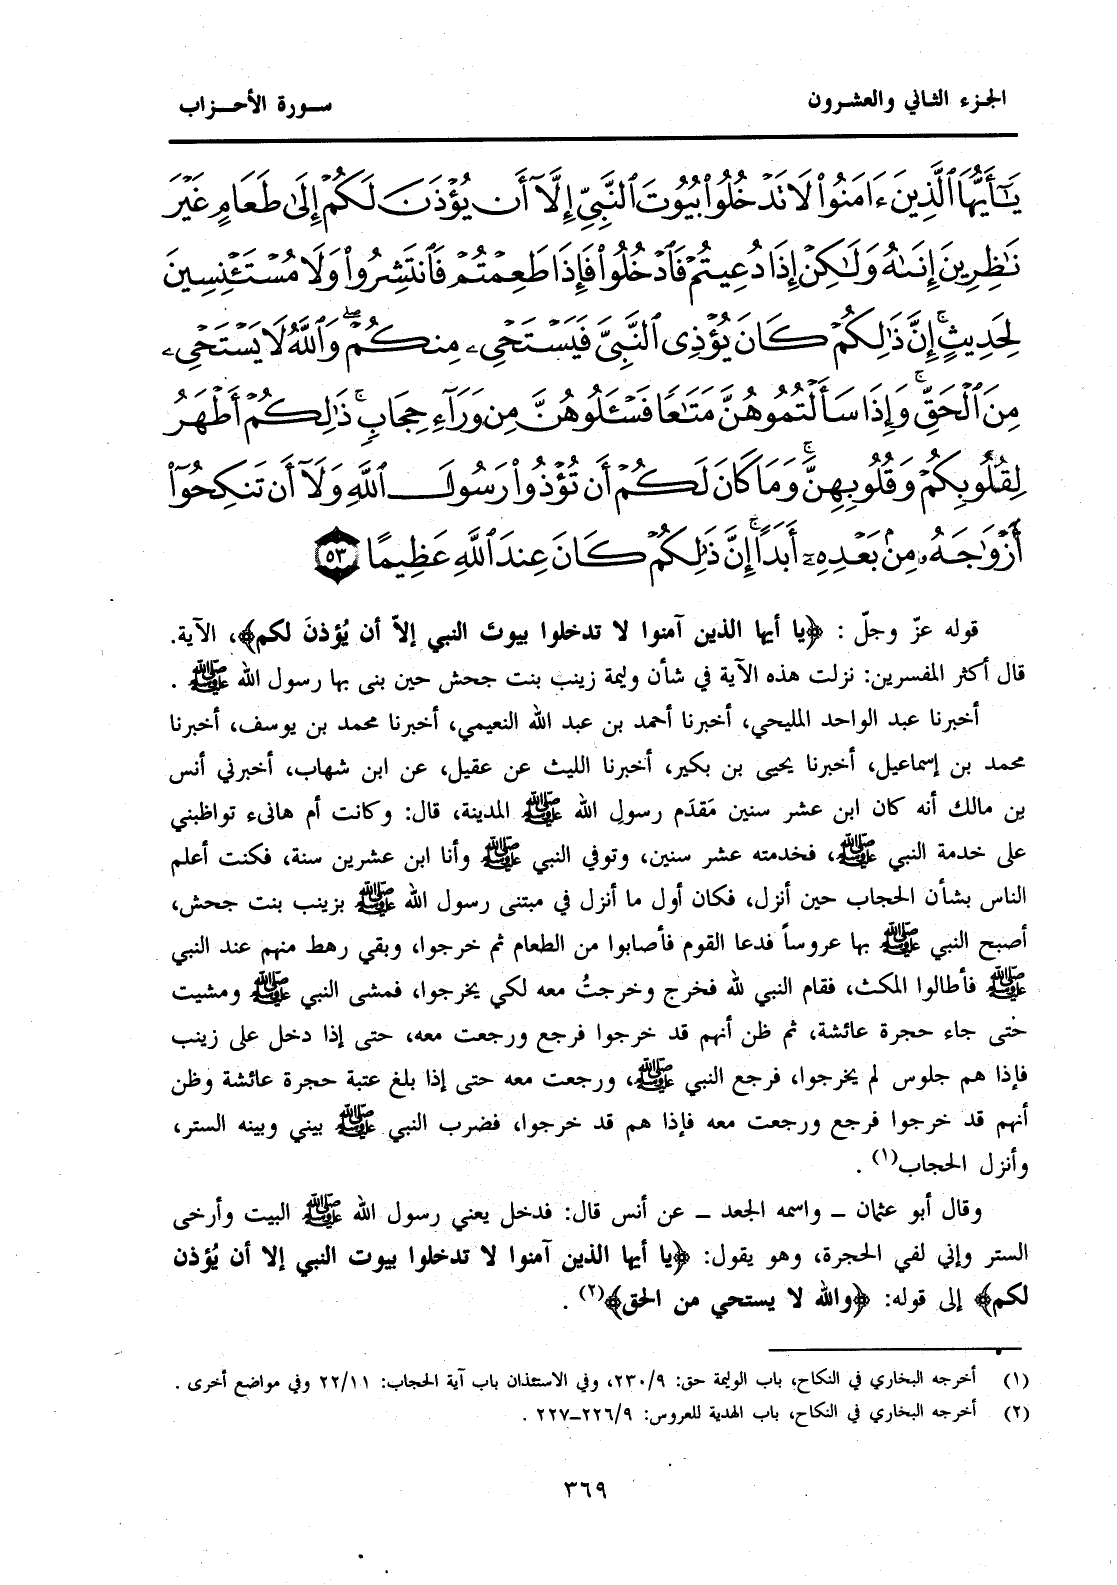 الجزء الثاني والعشرون
سورة الأحزاب
يَٰٓأَيُّهَا ٱلَّذِينَ ءَامَنُوا۟ لَا تَدْخُلُوا۟ بُيُوتَ ٱلنَّبِيِّ إِلَّآ أَن يُؤْذَنَ لَكُمْ إِلَىٰ طَعَامٍ غَيْرَ
نَٰظِرِينَ إِنَىٰهُ وَلَٰكِنْ إِذَا دُعِيتُمْ فَٱدْخُلُوا۟ فَإِذَا طَعِمْتُمْ فَٱنتَشِرُوا۟ وَلَا مُسْتَـْٔنِسِينَ
لِحَدِيثٍ ۚ إِنَّ ذَٰلِكُمْ كَانَ يُؤْذِى ٱلنَّبِيَّ فَيَسْتَحْيِۦ مِنكُمْ ۖ وَٱللَّهُ لَا يَسْتَحْيِۦ
مِنَ ٱلْحَقِّ ۚ وَإِذَا سَأَلْتُمُوهُنَّ مَتَٰعًا فَسْـَٔلُوهُنَّ مِن وَرَآءِ حِجَابٍ ۚ ذَٰلِكُمْ أَطْهَرُ
لِقُلُوبِكُمْ وَقُلُوبِهِنَّ ۚ وَمَا كَانَ لَكُمْ أَن تُؤْذُوا۟ رَسُولَ ٱللَّهِ وَلَآ أَن تَنكِحُوٓا۟
أَزْوَٰجَهُۥ مِنۢ بَعْدِهِۦٓ أَبَدًا ۚ إِنَّ ذَٰلِكُمْ كَانَ عِندَ ٱللَّهِ عَظِيمًا ٥٣
قوله عزّ وجلّ : ﴿يا أيها الذين آمنوا لا تدخلوا بيوتَ النبي إلاّ أن يُؤذنَ لكم﴾، الآية.
قال أكثر المفسرين: نزلت هذه الآية في شأن وليمة زينب بنت جحش حين بنى بها رسول الله ﷺ .
أخبرنا عبد الواحد المليحي، أخبرنا أحمد بن عبد الله النعيمي، أخبرنا محمد بن يوسف، أخبرنا
محمد بن إسماعيل، أخبرنا يحيى بن بكير، أخبرنا الليث عن عقيل، عن ابن شهاب، أخبرني أنس
بن مالك أنه كان ابن عشر سنين مَقدَم رسولِ الله ﷺ المدينة، قال: وكانت أم هانىء تواظبني
على خدمة النبي ﷺ، فخدمته عشر سنين، وتوفي النبي ﷺ وأنا ابن عشرين سنة، فكنت أعلم
الناس بشأن الحجاب حين أنزل، فكان أول ما أنزل في مبتنى رسول الله ﷺ بزينب بنت جحش،
أصبح النبي ﷺ بها عروساً فدعا القوم فأصابوا من الطعام ثم خرجوا، وبقي رهط منهم عند النبي
ﷺ فأطالوا المكث، فقام النبي لله فخرج وخرجتُ معه لكي يخرجوا، فمشى النبي ﷺ ومشيت
حتى جاء حجرة عائشة، ثم ظن أنهم قد خرجوا فرجع ورجعت معه، حتى إذا دخل على زينب
فإذا هم جلوس لم يخرجوا، فرجع النبي ﷺ، ورجعت معه حتى إذا بلغ عتبة حجرة عائشة وظن
أنهم قد خرجوا فرجع ورجعت معه فإذا هم قد خرجوا، فضرب النبي ﷺ بيني وبينه الستر،
وأنزل الحجاب(١) .
وقال أبو عثمان – واسمه الجعد – عن أنس قال: فدخل يعني رسول الله ﷺ البيت وأرخى
الستر وإني لفي الحجرة، وهو يقول: ﴿يا أيها الذين آمنوا لا تدخلوا بيوت النبي إلا أن يُؤذن
لكم﴾ إلى قوله: ﴿والله لا يستحي من الحق﴾(٢) .
(١) أخرجه البخاري في النكاح، باب الوليمة حق: ٢٣٠/٩، وفي الاستئذان باب آية الحجاب: ٢٢/١١ وفي مواضع أخرى .
(٢) أخرجه البخاري في النكاح، باب الهدية للعروس: ٢٢٦/٩–٢٢٧ .
٣٦٩